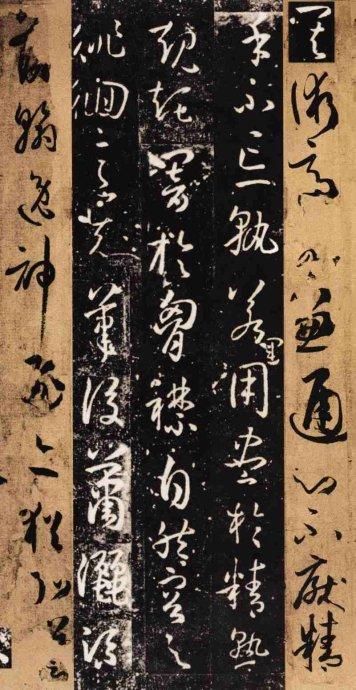 其術適可兼通心不厭精
手不忘熟若運用盡於精熟
規矩闇於胸襟自然容與
徘徊意先筆後瀟灑流
落翰逸神飛亦猶弘羊之